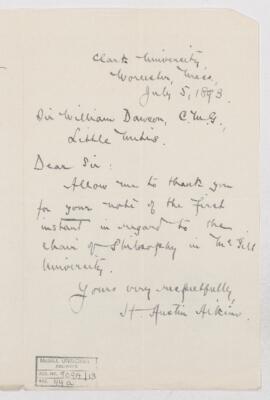 Clark University,
Worcester, Mass.,
July 5, 1893.
Sir William Dawson, C.M.G.,
Little Metis.
Dear Sir:
Allow me to thank you
for your note of the first
instant in regard to the
chair of Philosophy in McGill
University.
Yours very respectfully,
H. Austin Aikins.
McGILL UNIVERSITY
ARCHIVES
ACC. NO.
REF. 44a